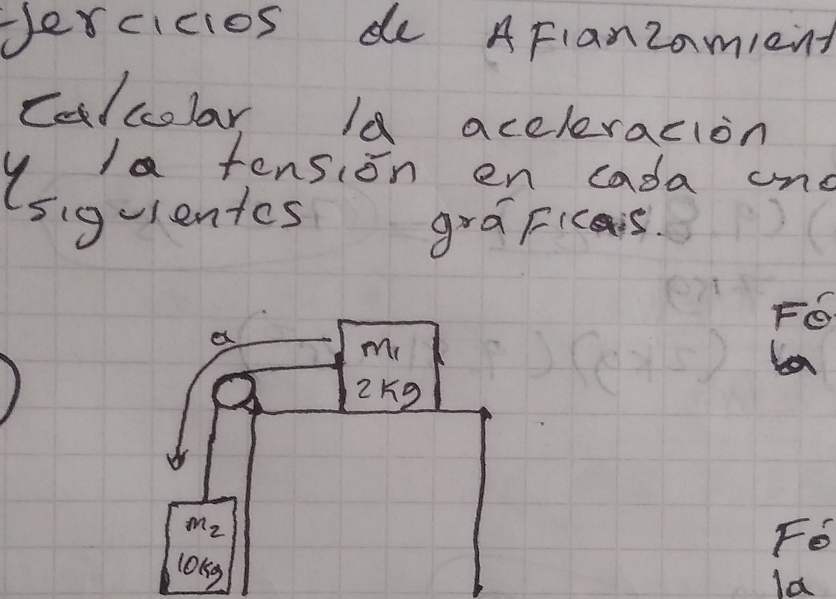 Ejercicios de AFianzamient
Calcular la aceleración
y la tensión en cada uno
siguientes gráFicas.
a
m₁
2Kg
Fó
la
m₂
10Kg
Fó
la